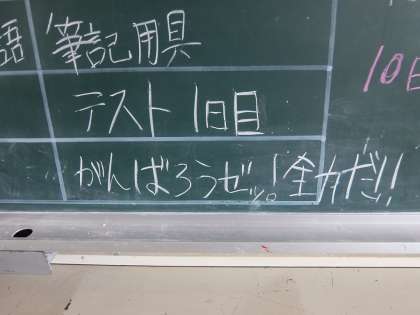 語 筆記用具
10日
テスト 1日目
がんばろうゼッ!全力だ!!